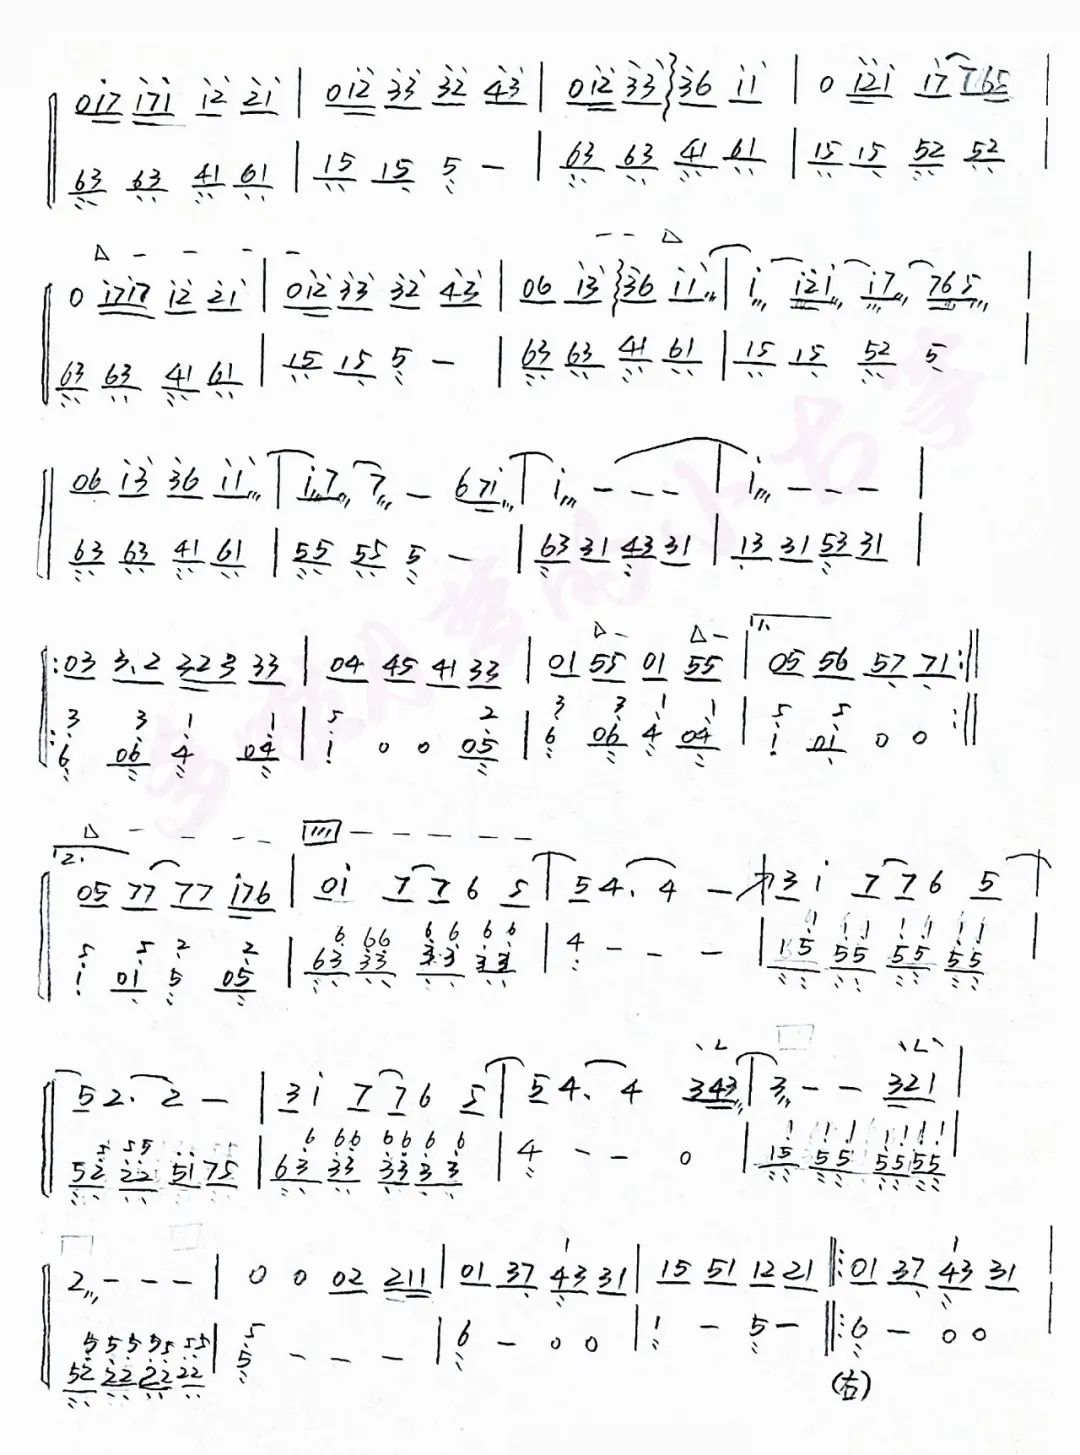 017 171 12 21 | 012 33 32 43 | 012 33 36 11 | 0 121 17 765 |
63 63 41 61 | 15 15 5 – | 63 63 41 61 | 15 15 52 52 |
0 1717 12 21 | 012 33 32 43 | 06 13 36 11 | 1 121 17 765 |
63 63 41 61 | 15 15 5 – | 63 63 41 61 | 15 15 52 5
06 13 36 11 | 1 7 7 – 671 | 1 – – – | 1 – – – |
63 63 41 61 | 55 55 5 – | 63 31 43 31 | 13 31 53 31 |
1.
:03 3.2 323 33 | 04 45 41 33 | 01 55 01 55 | 05 56 57 71 :||
3 3 1 1 | 5 2 | 3 3 1 1 | 5 5
: 6 06 4 04 | 1 0 0 05 | 6 06 4 04 | 1 01 0 0 :||
2.
05 77 77 176 | 01 7 7 6 5 | 5 4. 4 – | 3 1 7 7 6 5 |
5 5 2 2 | 6 66 6 6 6 6
1 01 5 05 | 63 33 33 33 | 4 – – – | 15 55 55 55 |
5 2. 2 – | 3 1 7 7 6 5 | 5 4. 4 343 | 3 – – 321 |
52 22 51 75 | 63 33 33 3 3 | 4 – – 0 | 15 55 55 55 |
2 – – – | 0 0 02 211 | 01 37 43 31 | 15 51 12 21 ||: 01 37 43 31 |
52 22 22 22 | 5 – – – | 6 – 0 0 | 1 – 5 – ||: 6 – 0 0
(右)